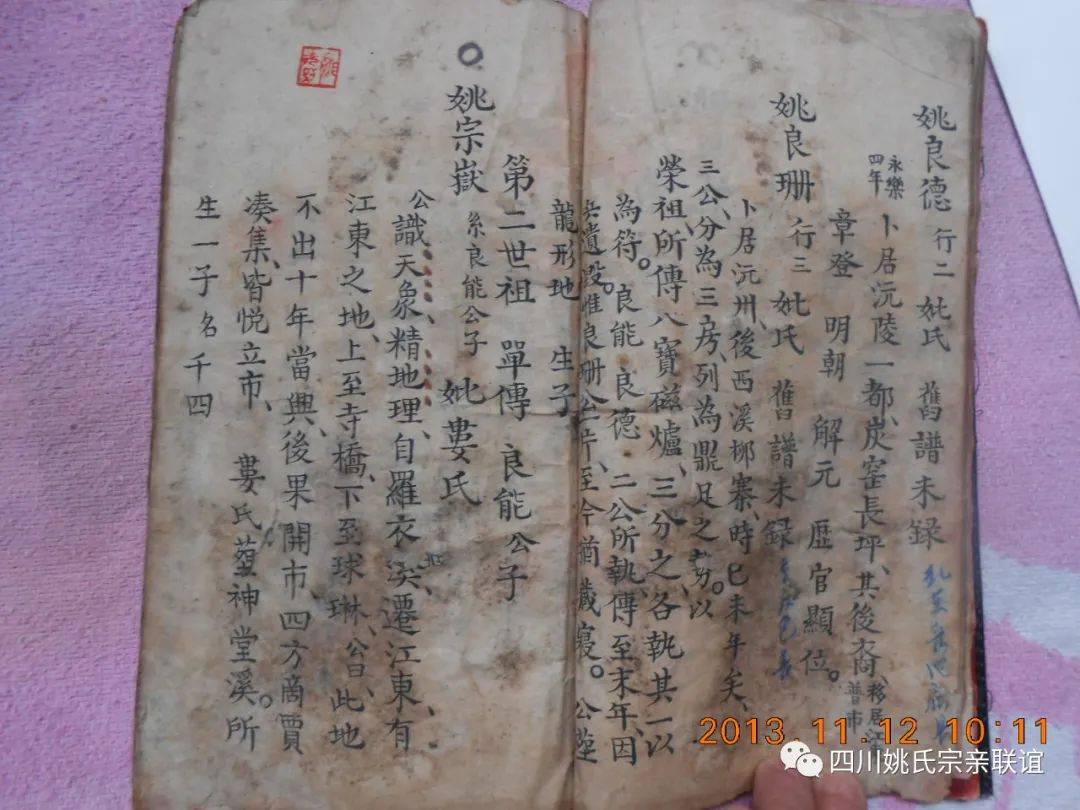 姚良德 行二 妣氏 舊譜未録
永樂四年 卜居沅陵一都炭窑長坪、其後裔、移居江普市
章登 明朝 解元 歷官顯位。
姚良珊 行三 妣氏 舊譜未録
卜居沅州、後西溪梛寨、時已未年矣、
三公、分為三房、列為鼎足之势。以
榮祖、所傳八寶磁爐、三分之、各執其一以
為符。良能 良德 二公所執、傳至末年、因
兵遺毀、惟良珊公片、至今猶藏寔。公塋
龍形地 生子
第二世祖 單傳 良能公子
姚宗嶽 系良能公子 妣婁氏
公識天象、精地理、自羅衣 遷江東、有
江東之地、上至寺橋、下至球琳、公曰、此地
不出十年當興、後果開市、四方商賈
凑集、皆悦立市、 婁氏塟神堂溪。所
生一子 名千四
2013.11.12 10:11
四川姚氏宗亲联谊